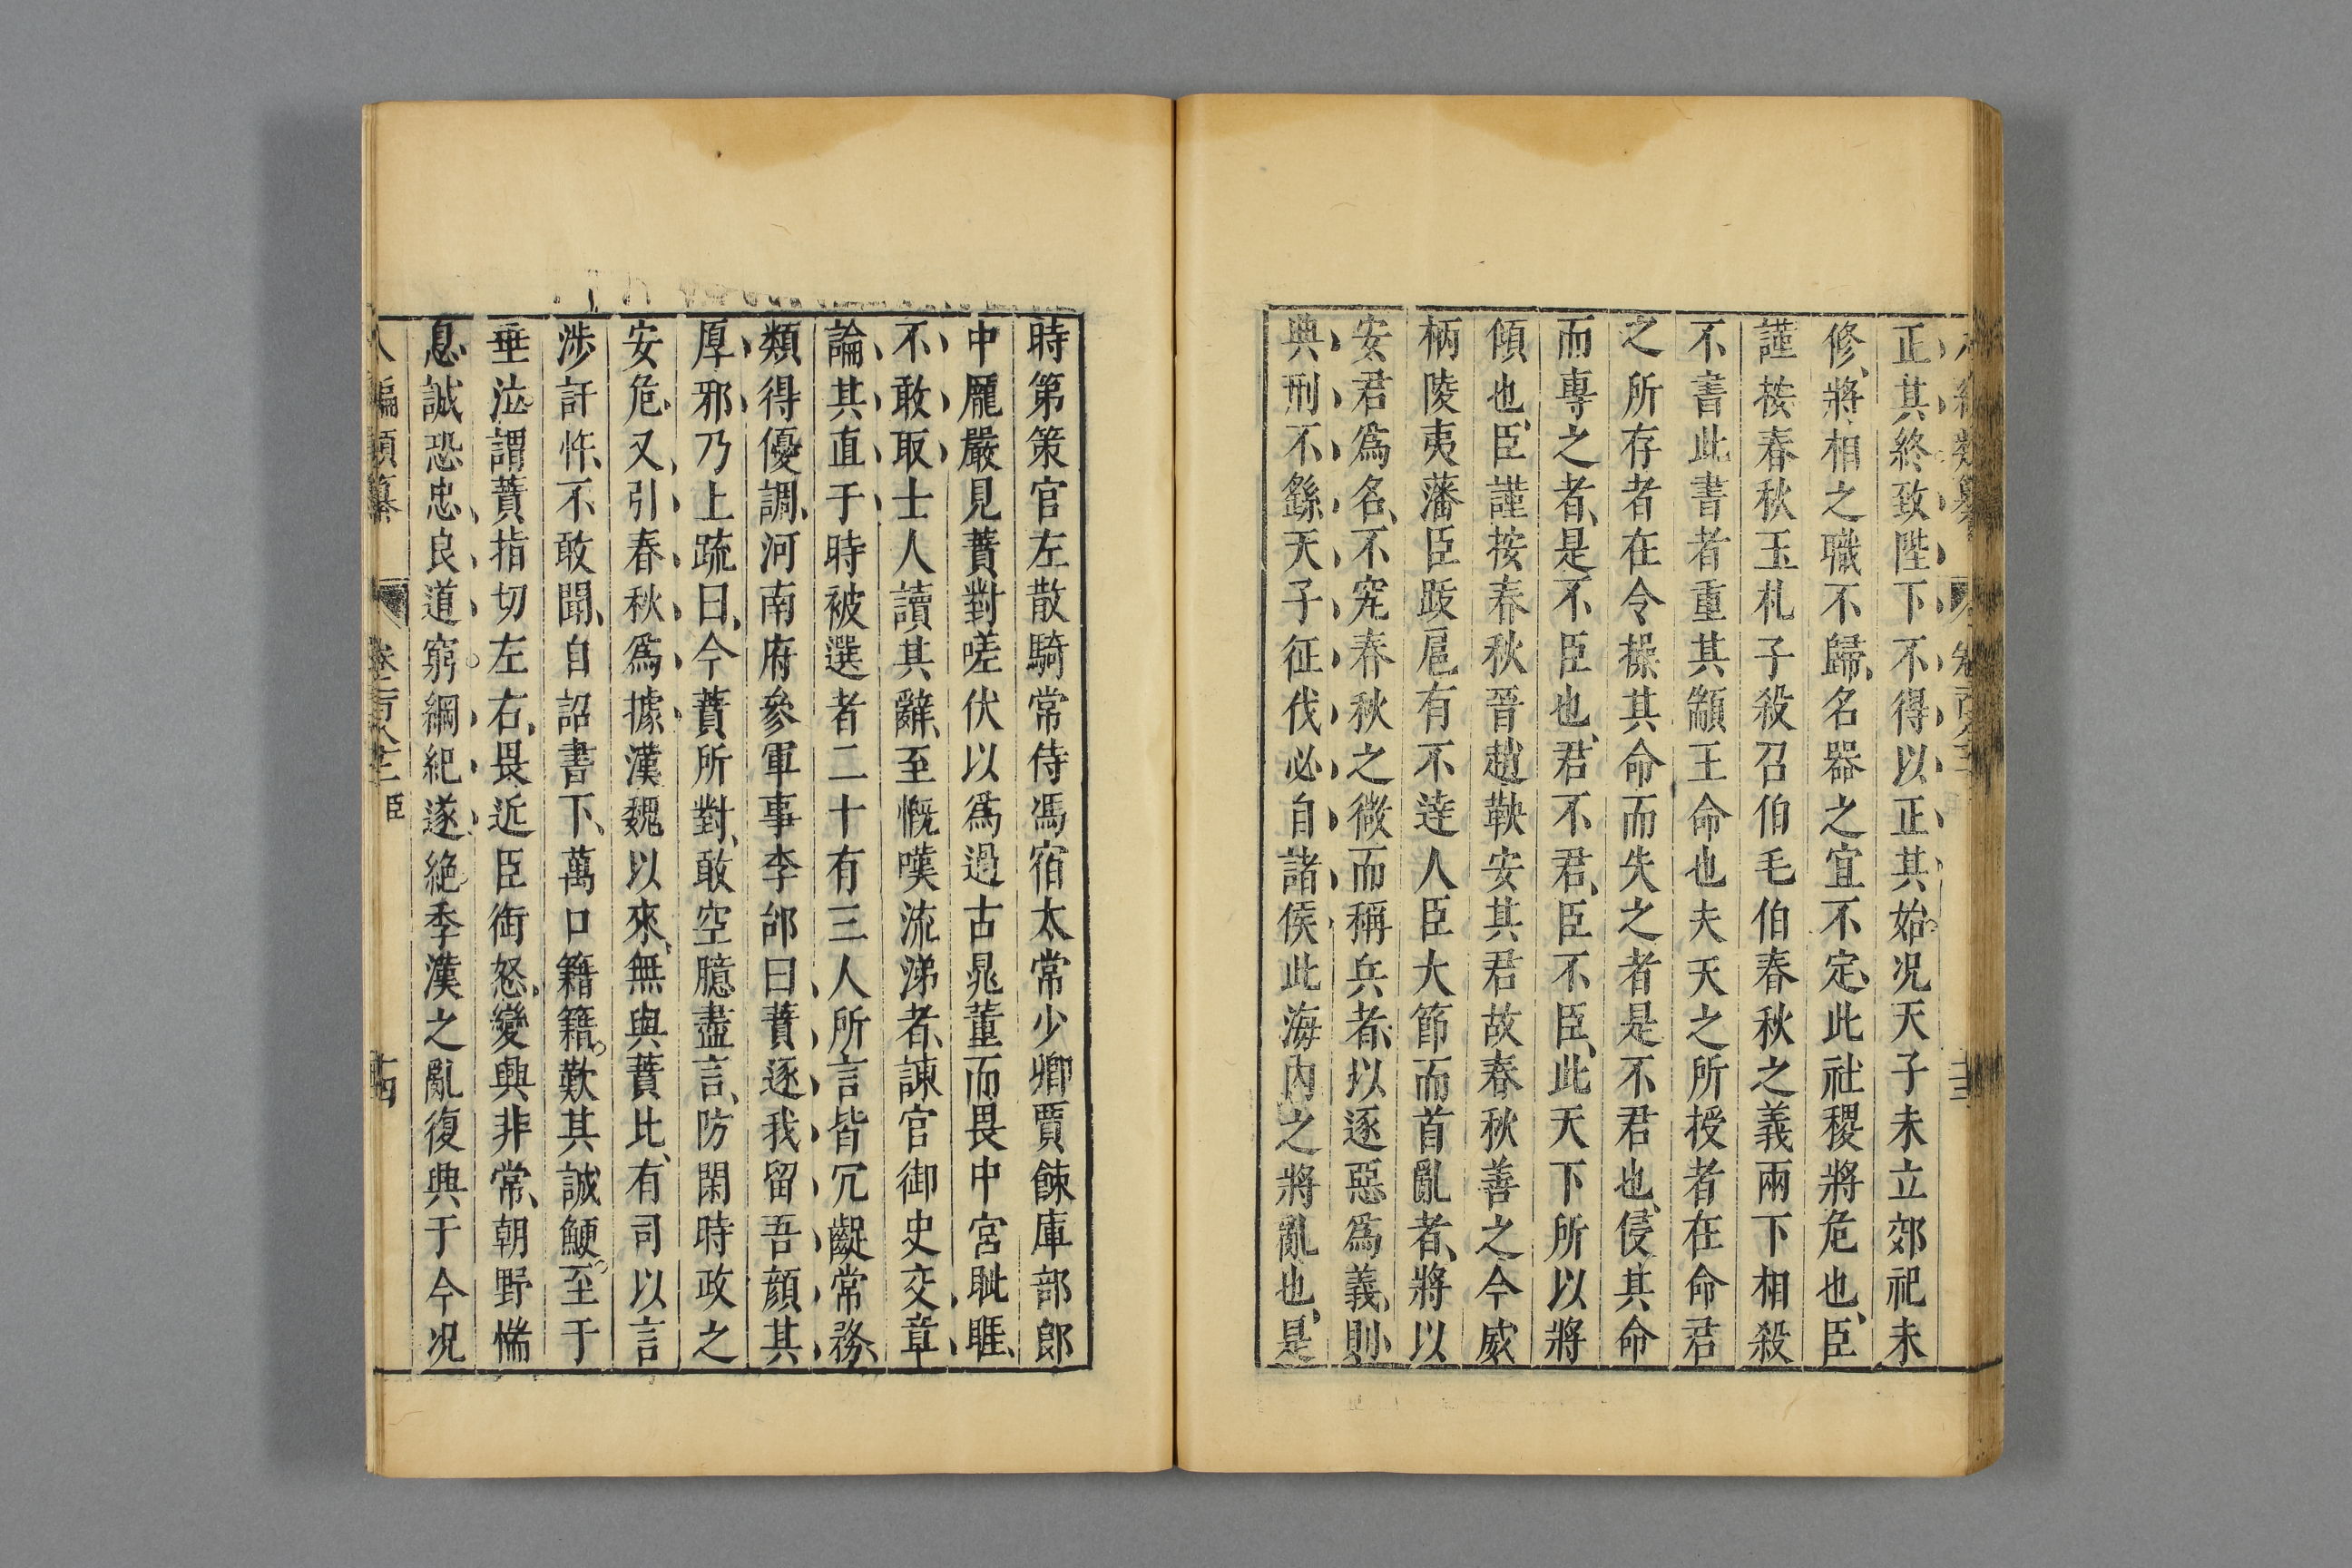 正其終致陛下不得以正其始况天子未立郊祀未
修將相之職不歸名器之宜不定此社稷將危也臣
謹按春秋王札子殺召伯毛伯春秋之義兩下相殺
不書此書者重其顓王命也夫天之所授者在命君
之所存者在令操其命而失之者是不君也侵其命
而專之者是不臣也君不君臣不臣此天下所以將
傾也臣謹按春秋晉趙鞅安其君故春秋善之今威
柄陵夷藩臣跋扈有不達人臣大節而首亂者將以
安君爲名不究春秋之微而稱兵者以逐惡爲義則
典刑不繇天子征伐必自諸侯此海內之將亂也是
時第策官左散騎常侍馮宿太常少卿賈餗庫部郎
中龎嚴見蕡對嗟伏以爲過古晁董而畏中宮眦睚
不敢取士人讀其辭至慨嘆流涕者諫官御史交章
論其直于時被選者二十有三人所言皆冗齪常務
類得優調河南府參軍事李郃曰蕡逐我留吾顏其
厚邪乃上疏曰今蕡所對敢空臆盡言防閑時政之
安危又引春秋爲據漢魏以來無與蕡比有司以言
涉訐忤不敢聞自詔書下萬口籍籍歎其誠鯁至于
垂泣謂蕡指切左右畏近臣銜怒變興非常朝野惴
息誠恐忠良道窮綱紀遂絶季漢之亂復興于今况
編類纂 卷二百八十三 臣 十四